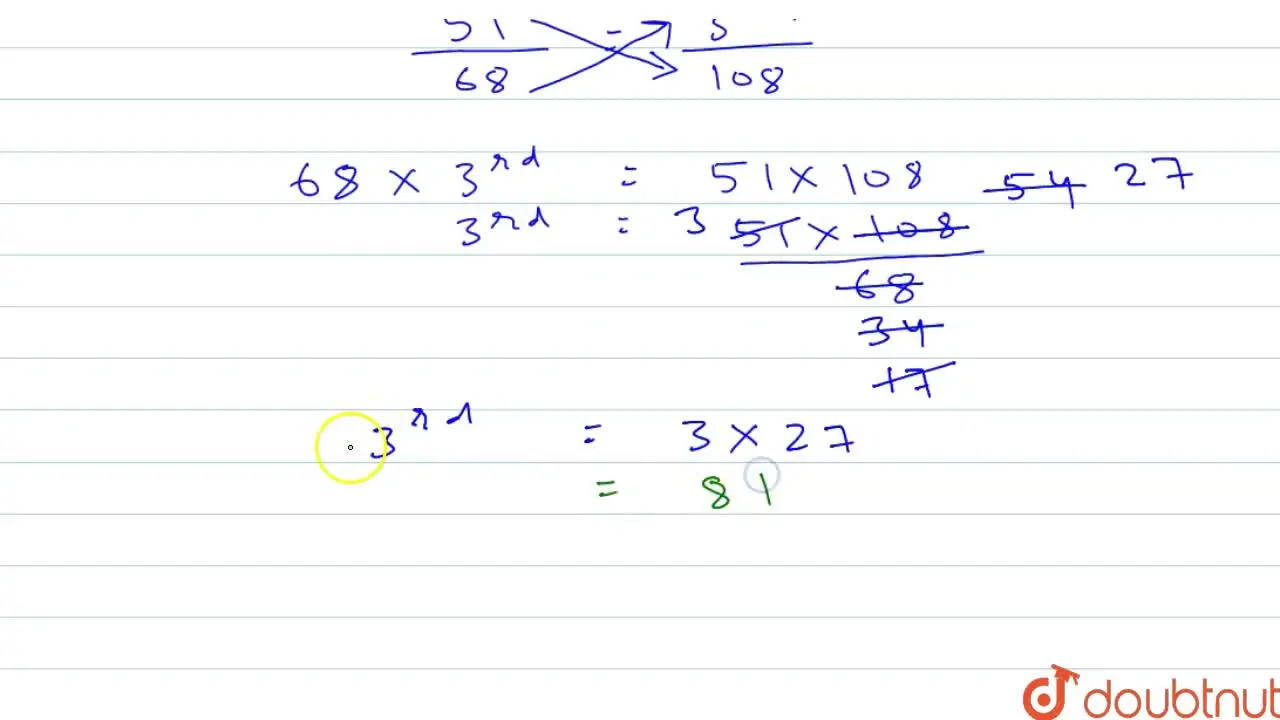 51 = 3
68 108
68 × 3rd = 51 × 108 54 27
3rd = 3 51 × 108
68
34
17
3rd = 3 × 27
= 81
doubtnut